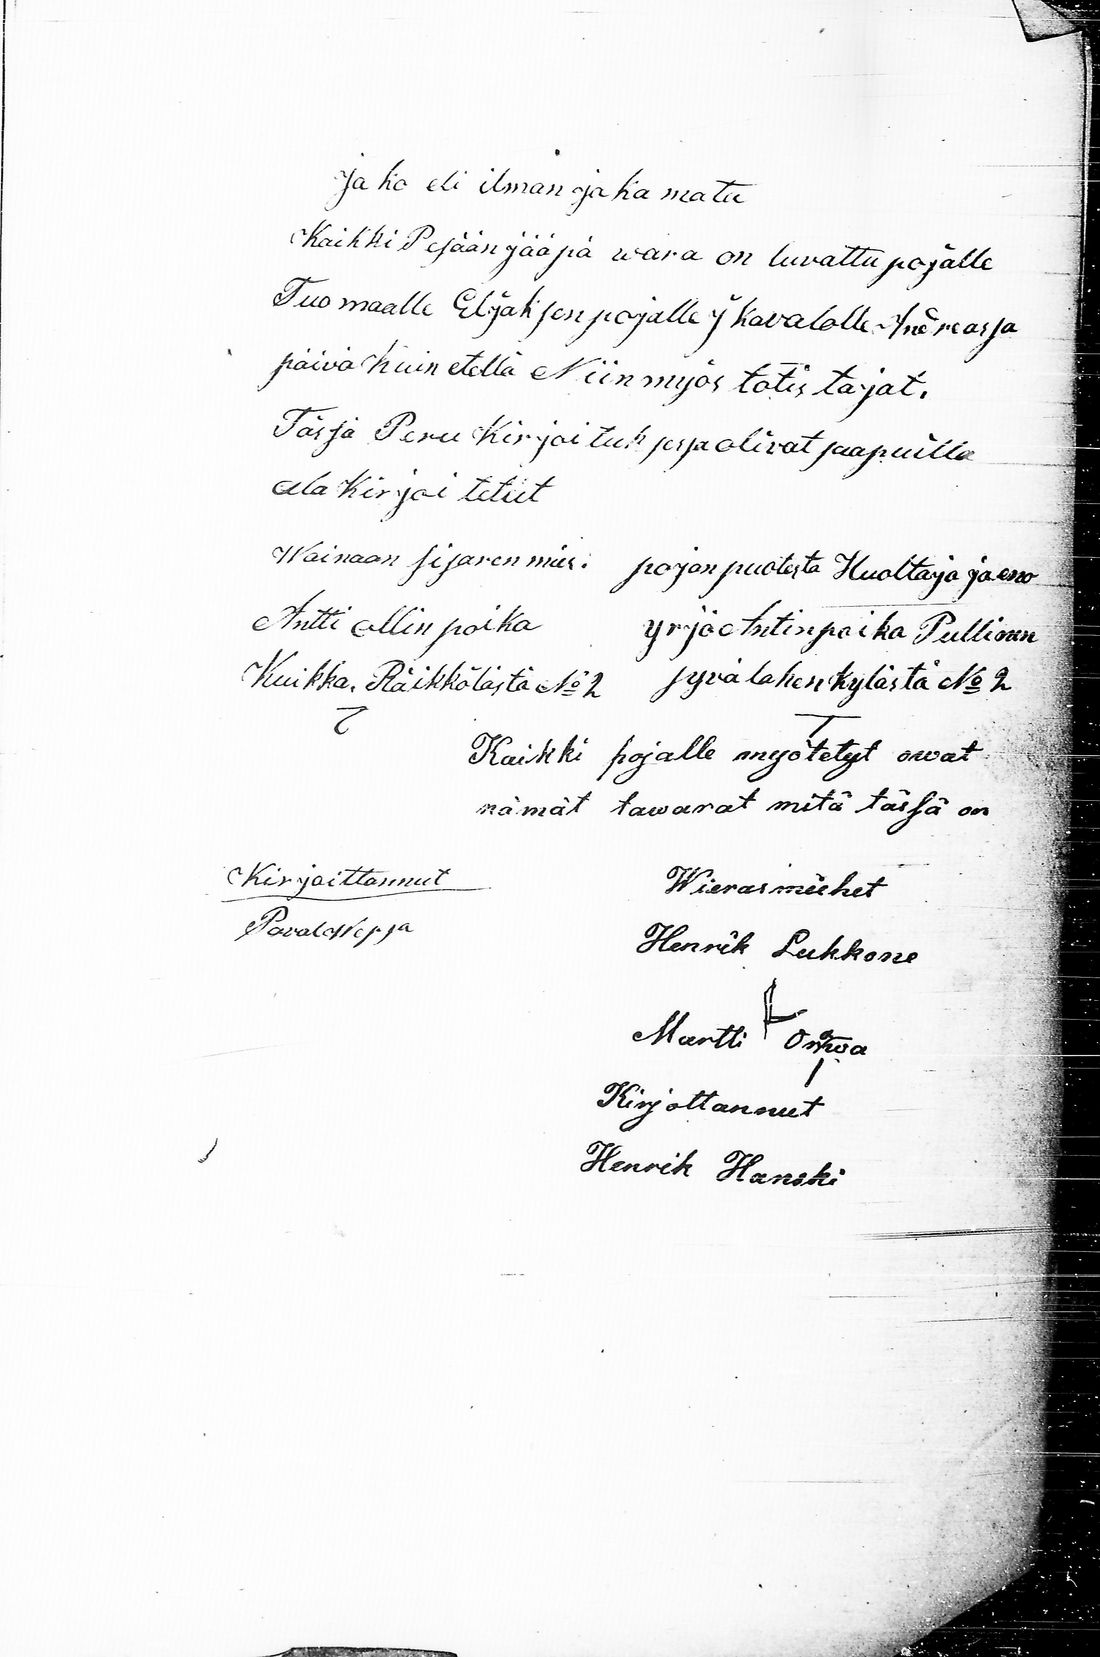 ja ko eli ilman jakamatu
Kaikki Pesään jääpä wara on luvattu pojälle
Tuomaalle Eljaksen pojalle Andreassa
päivä kuin etellä Niin myös totistajat.
Täsjä Peru Kirjoituksessa olivat saapuilla
ala Kirjoitetut
Wainaan sisaren mies. pojan puolesta Huoltaja ja eno
Antti Ollin poika Yrjö Antinpoika Pullinen
Kuikka. Räikkölästä No 2 jyvälahen kylästä No 2
Kaikki pojalle myötetyt owat
nämät tawarat mitä tässä on
Kirjoittannut Wierasmiehet
Henrik Lukkone
Martti
Kirjottannut
Henrik Hanski